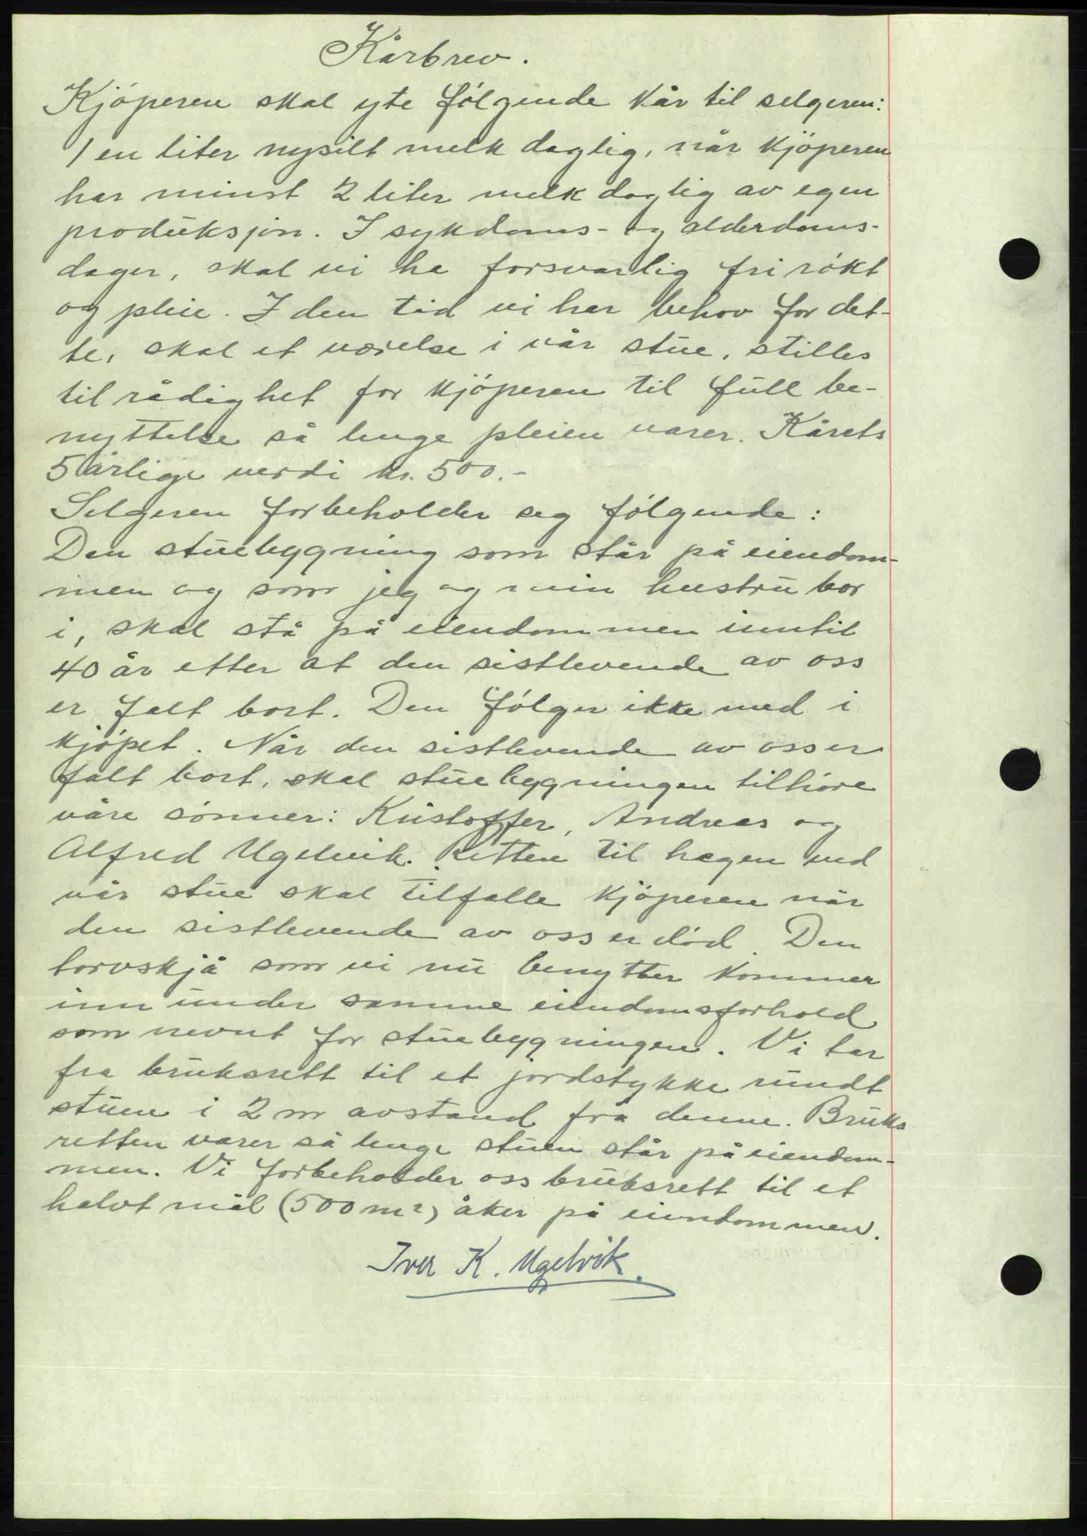 Kårbrev.
Kjöperen skal yte følgende kår til selgeren:
1 en liter nysilt melk daglig, når kjöperen
har minst 2 liter melk daglig av egen
produksjon. I sykdoms- og alderdoms-
dager, skal vi ha forsvarlig fri røkt
og pleie. I den tid vi har behov for det-
te, skal et værelse i vår stue, stilles
til rådighet for kjöperen til full be-
nyttelse så lenge pleien varer. Kårets
5 årlige verdi kr. 500.-
Selgeren forbeholder seg følgende:
Den stuebygning som står på eiendom-
men og som jeg og min hustru bor
i, skal stå på eiendommen inntil
40 år etter at den sistlevende av oss
er falt bort. Den følger ikke med i
kjöpet. Når den sistlevende av oss er
falt bort, skal stuebygningen tilhøre
våre sønner: Kristoffer, Andreas og
Alfred Ugelvik. Retten til hagen ved
vår stue skal tilfalle kjöperen når
den sistlevende av oss er død. Den
torvskjå som vi nu benytter kommer
inn under samme eiendomsforhold
som nevnt for stuebygningen. Vi har
fra bruksrett til et jordstykke rundt
stuen i 2 m avstand fra denne. Bruks
retten varer så lenge stuen står på eiendom-
men. Vi forbeholder oss bruksrett til et
halvt mål (500 m²) åker på eiendommen.
Iver K. Ugelvik.